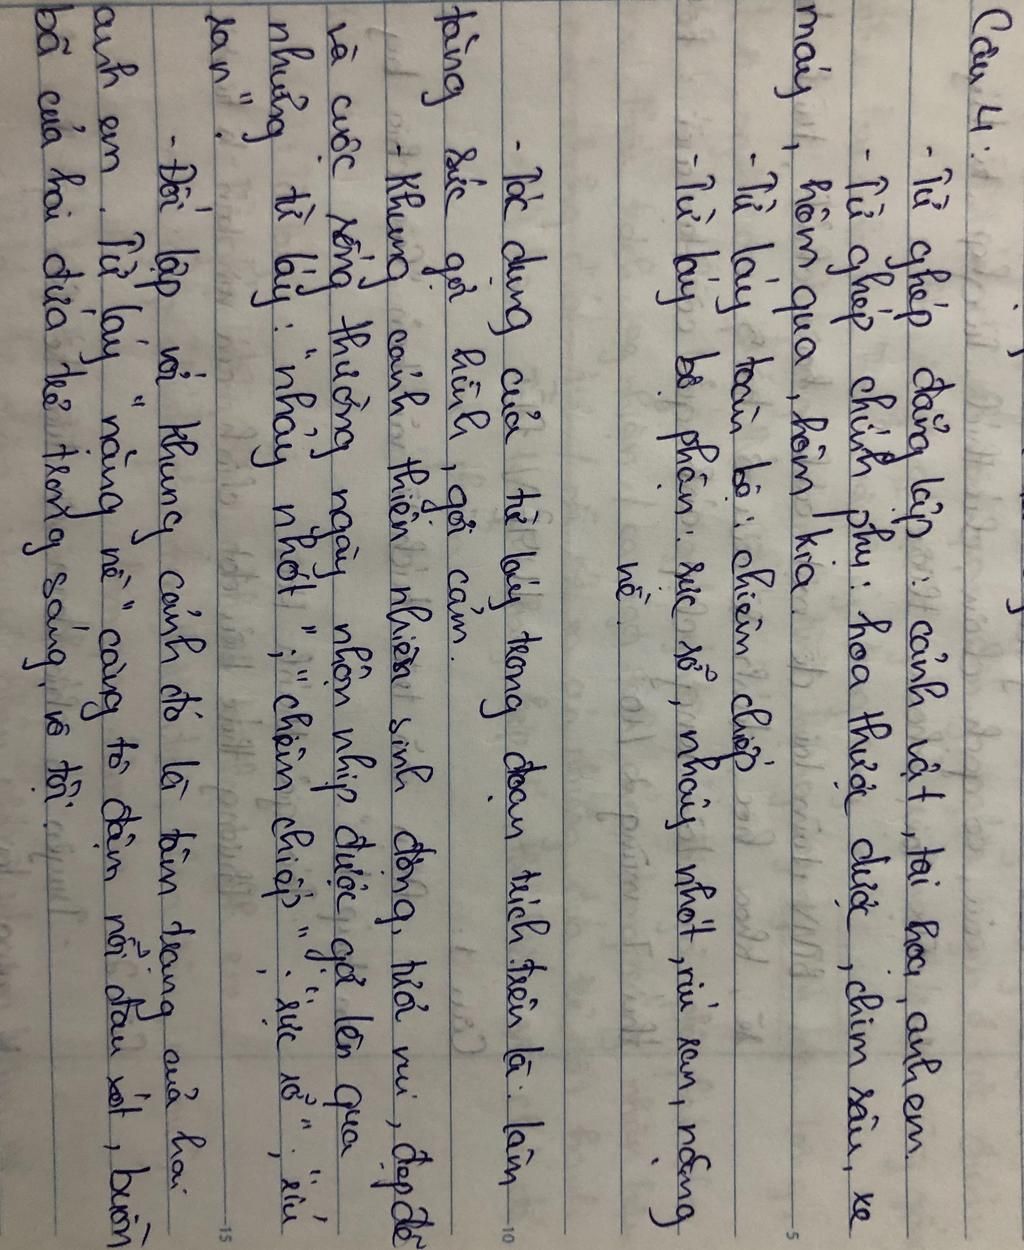 Câu 4:
- Từ ghép đẳng lập: cảnh vật, tai hoạ, anh em
- Từ ghép chính phụ: hoa thược dược, chim sâu, xe
máy, hôm qua, hôm kia
- Từ láy toàn bộ: chiêm chiếp
- Từ láy bộ phận: sực sỡ, nhảy nhót, ríu ran, nặng
nề
- Tác dụng của từ láy trong đoạn trích trên là: làm
tăng sức gợi hình, gợi cảm.
+ Khung cảnh thiên nhiên sinh động, tươi vui, đẹp đẽ
và cuộc sống thường ngày nhộn nhịp được gợi lên qua
những từ láy: "nhảy nhót", "chiêm chiếp", "sực sỡ", "ríu
ran".
- Đối lập với khung cảnh đó là tâm trạng của hai
anh em. Từ láy "nặng nề" càng tô đậm nỗi đau xót, buồn
bã của hai đứa trẻ trong sáng, vô tội.
5
10
15